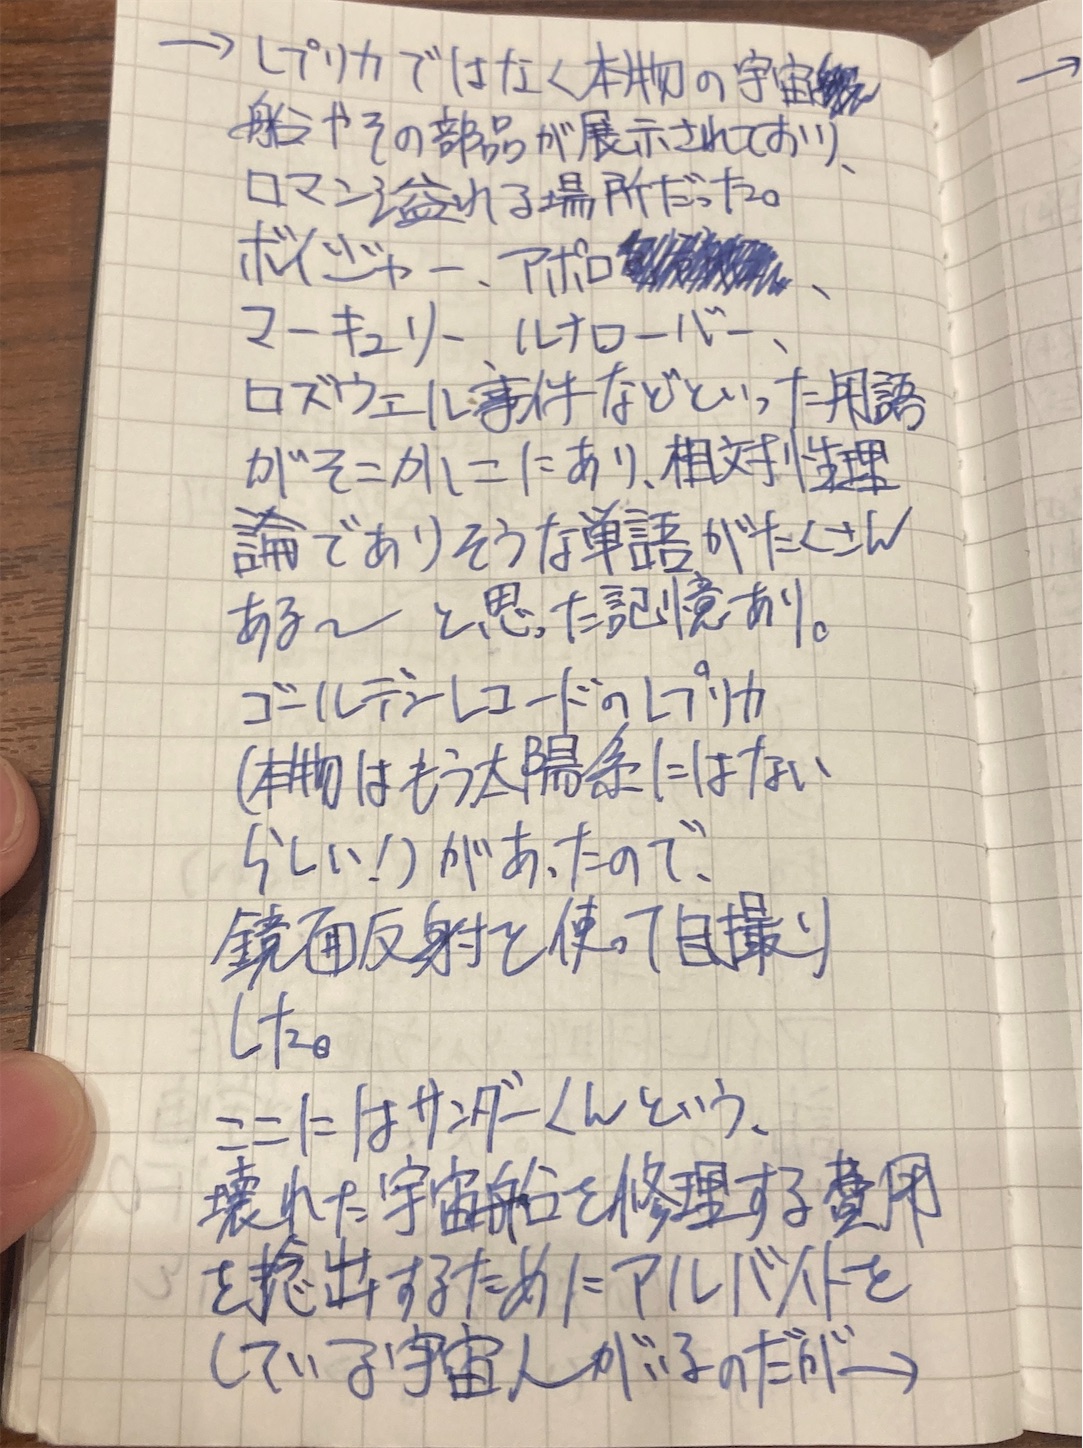 →レプリカではなく本物の宇宙
船やその部品が展示されており、
ロマン溢れる場所だった。
ボイジャー、アポロ、
マーキュリー、ルナローバー、
ロズウェル事件などといった用語
がそこかしこにあり、相対性理
論でありそうな単語がたくさん
ある〜と思った記憶あり。
ゴールデンレコードのレプリカ
(本物はもう太陽系にはない
らしい!)があったので、
鏡面反射を使って自撮り
した。
ここにはサンダーくんという、
壊れた宇宙船を修理する費用
を捻出するためにアルバイトを
している宇宙人がいるのだが→
→